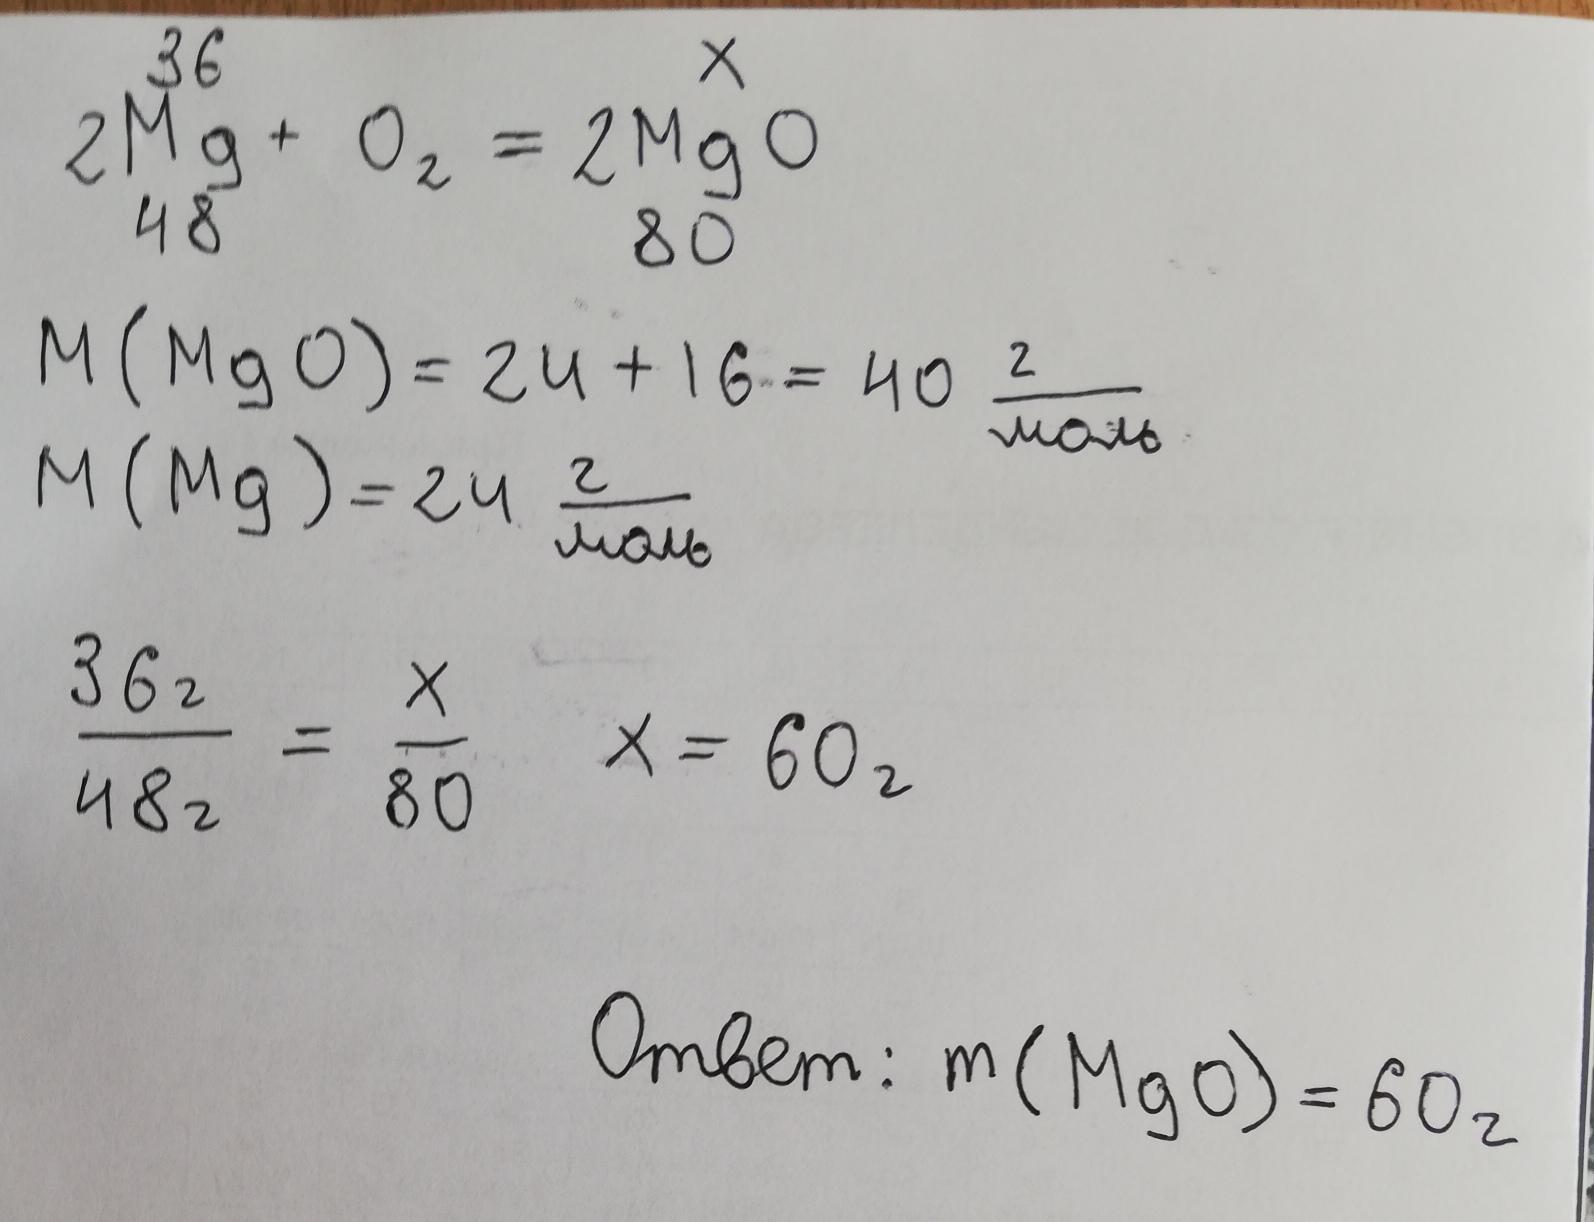 36 x
2Mg + O₂ = 2MgO
48 80
M(MgO) = 24 + 16 = 40 г/моль
M(Mg) = 24 г/моль
36г/48г = x/80 x = 60г
Ответ: m(MgO) = 60г